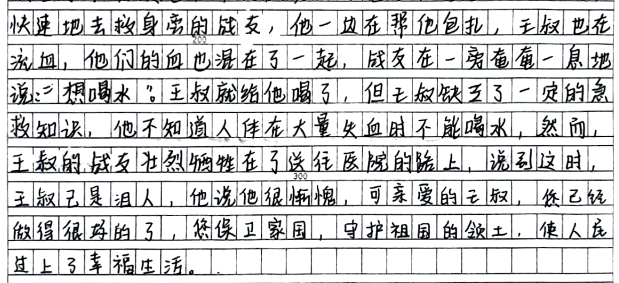 快速地去救身旁的战友，他一边在帮他包扎，王叔也在
流血，他们的血也混在了一起，战友在一旁奄奄一息地
200
说：“想喝水”。王叔就给他喝了，但王叔缺乏了一定的急
救知识，他不知道人体在大量失血时不能喝水，然而，
王叔的战友壮烈牺牲在了送往医院的路上，说到这时，
王叔已是泪人，他说他很惭愧，可亲爱的王叔，您已经
300
做得很好的了，您保卫家国，守护祖国的领土，使人民
过上了幸福生活。